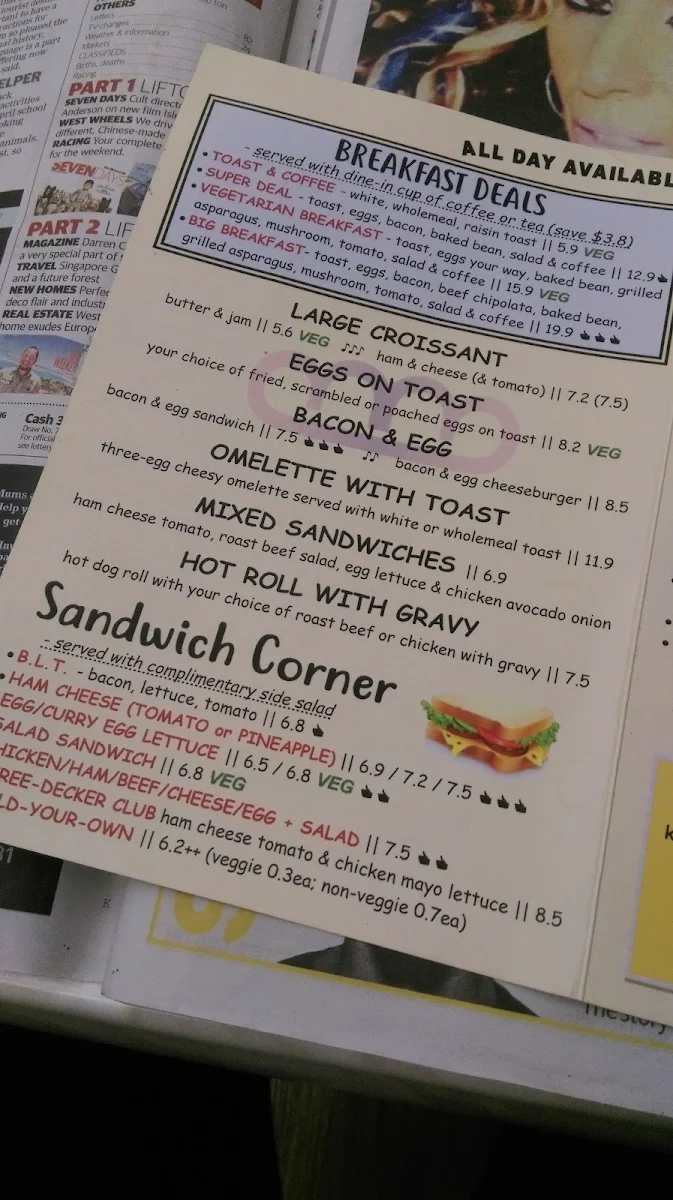 OTHERS
Letters
TV changes
Weather & information
Markets
CLASSIFIEDS
Births, deaths
Racing
PART 1 LIFTO
SEVEN DAYS Cult direct
Anderson on new film Isle
WEST WHEELS We driv
different, Chinese-made
RACING Your complete
for the weekend.
SEVENDAYS
PART 2 LIF
MAGAZINE Darren C
a very special part of
TRAVEL Singapore G
and a future forest
NEW HOMES Perfec
deco flair and indust
REAL ESTATE West
home exudes Europe
Cash 3
Draw No. 7
For official
see lottery
ALL DAY AVAILABL
BREAKFAST DEALS
- served with dine-in cup of coffee or tea (save $3.8)
• TOAST & COFFEE - white, wholemeal, raisin toast || 5.9 VEG
• SUPER DEAL - toast, eggs, bacon, baked bean, salad & coffee || 12.9
• VEGETARIAN BREAKFAST - toast, eggs your way, baked bean, grilled
asparagus, mushroom, tomato, salad & coffee || 15.9 VEG
• BIG BREAKFAST- toast, eggs, bacon, beef chipolata, baked bean,
grilled asparagus, mushroom, tomato, salad & coffee || 19.9
LARGE CROISSANT
butter & jam || 5.6 VEG ♪♪♪ ham & cheese (& tomato) || 7.2 (7.5)
EGGS ON TOAST
your choice of fried, scrambled or poached eggs on toast || 8.2 VEG
BACON & EGG
bacon & egg sandwich || 7.5 ♪♪ bacon & egg cheeseburger || 8.5
OMELETTE WITH TOAST
three-egg cheesy omelette served with white or wholemeal toast || 11.9
MIXED SANDWICHES || 6.9
ham cheese tomato, roast beef salad, egg lettuce & chicken avocado onion
HOT ROLL WITH GRAVY
hot dog roll with your choice of roast beef or chicken with gravy || 7.5
Sandwich Corner
- served with complimentary side salad
• B.L.T. - bacon, lettuce, tomato || 6.8
• HAM CHEESE (TOMATO or PINEAPPLE) || 6.9 / 7.2 / 7.5
EGG/CURRY EGG LETTUCE || 6.5 / 6.8 VEG
SALAD SANDWICH || 6.8 VEG
HICKEN/HAM/BEEF/CHEESE/EGG + SALAD || 7.5
REE-DECKER CLUB ham cheese tomato & chicken mayo lettuce || 8.5
LD-YOUR-OWN || 6.2++ (veggie 0.3ea; non-veggie 0.7ea)
The Story